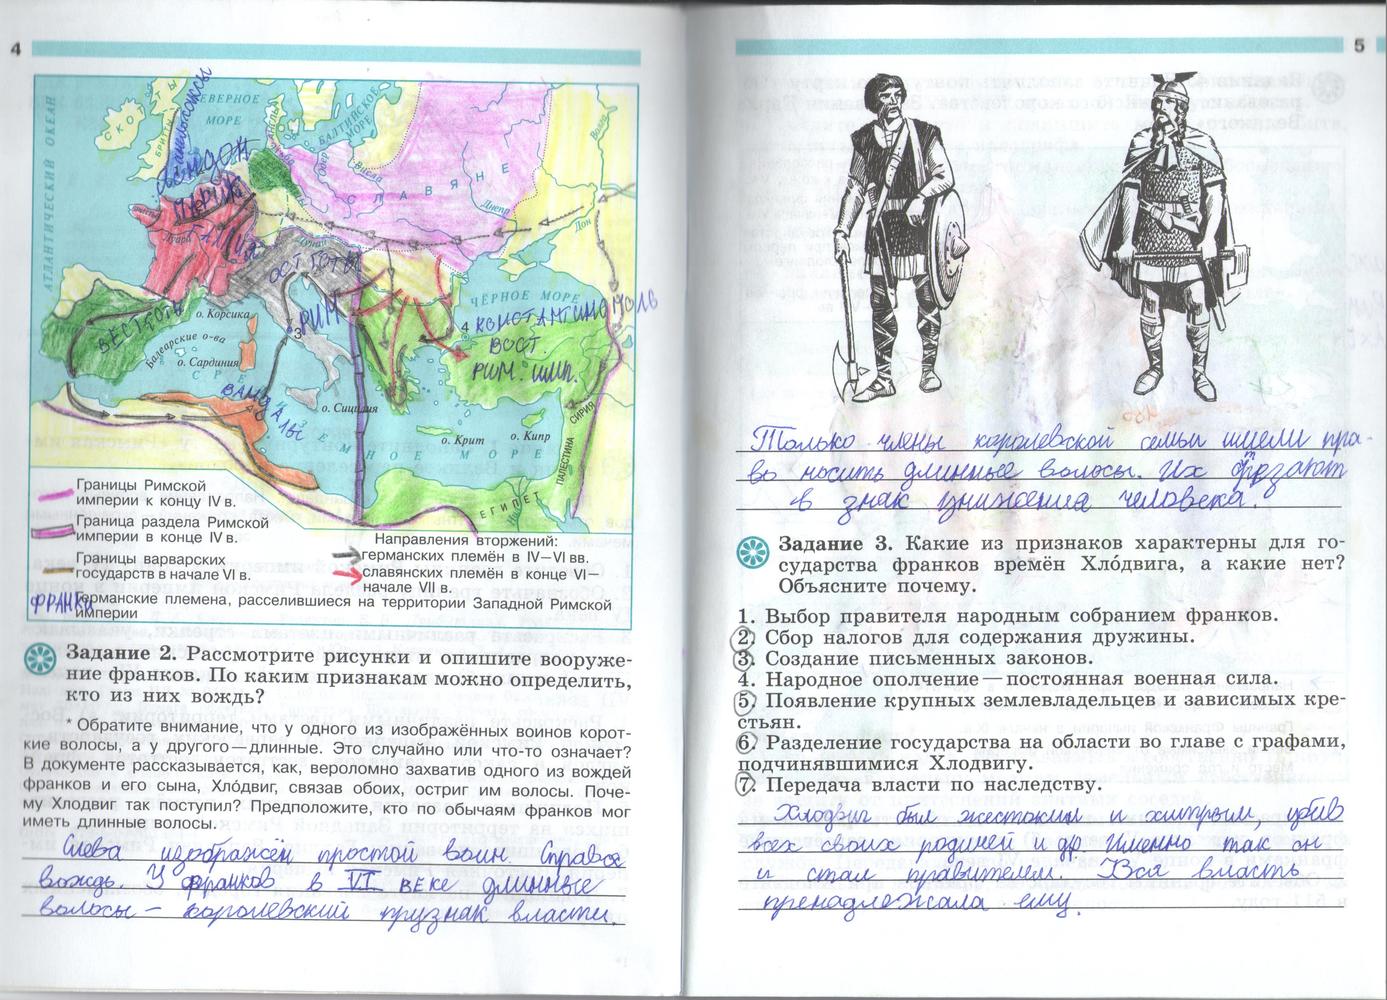 4
АТЛАНТИЧЕСКИЙ ОКЕАН
СКОТТЫ
БРИТТЫ
СЕВЕРНОЕ
МОРЕ
БАЛТИЙСКОЕ
МОРЕ
Висла
Волга
СЛАВЯНЕ
Днепр
Дон
ЛОНДОН
ПАРИЖ
Луара
Дунай
ОСТГОТЫ
ВЕСТГОТЫ
о. Корсика
Балеарские о-ва
о. Сардиния
3
РИМ
4
ЧЁРНОЕ МОРЕ
КОНСТАНТИНОПОЛЬ
ВОСТ.
РИМ. ИМП.
ВАНДАЛЫ
о. Сицилия
СРЕДИЗЕМНОЕ МОРЕ
о. Крит
о. Кипр
СИРИЯ
ПАЛЕСТИНА
ЕГИПЕТ
Нил
Границы Римской
империи к концу IV в.
Граница раздела Римской
империи в конце IV в.
Границы варварских
государств в начале VI в.
Направления вторжений:
германских племён в IV—VI вв.
славянских племён в конце VI—
начале VII в.
ФРАНКИ Германские племена, расселившиеся на территории Западной Римской
империи
Задание 2. Рассмотрите рисунки и опишите вооруже-
ние франков. По каким признакам можно определить,
кто из них вождь?
* Обратите внимание, что у одного из изображённых воинов корот-
кие волосы, а у другого—длинные. Это случайно или что-то означает?
В документе рассказывается, как, вероломно захватив одного из вождей
франков и его сына, Хло́двиг, связав обоих, остриг им волосы. Поче-
му Хлодвиг так поступил? Предположите, кто по обычаям франков мог
иметь длинные волосы.
Слева изображён простой воин. Справа
вождь. У франков в VI веке длинные
волосы – королевский признак власти.
5
Только члены королевской семьи имели пра-
во носить длинные волосы. Их
в знак унижения человека.
Задание 3. Какие из признаков характерны для го-
сударства франков времён Хло́двига, а какие нет?
Объясните почему.
1. Выбор правителя народным собранием франков.
2. Сбор налогов для содержания дружины.
3. Создание письменных законов.
4. Народное ополчение—постоянная военная сила.
5. Появление крупных землевладельцев и зависимых кре-
стьян.
6. Разделение государства на области во главе с графами,
подчинявшимися Хлодвигу.
7. Передача власти по наследству.
Хлодвиг был жестоким и хитрым, убив
всех своих родичей и др. Именно так он
и стал правителем. Вся власть
пренадлежала ему.